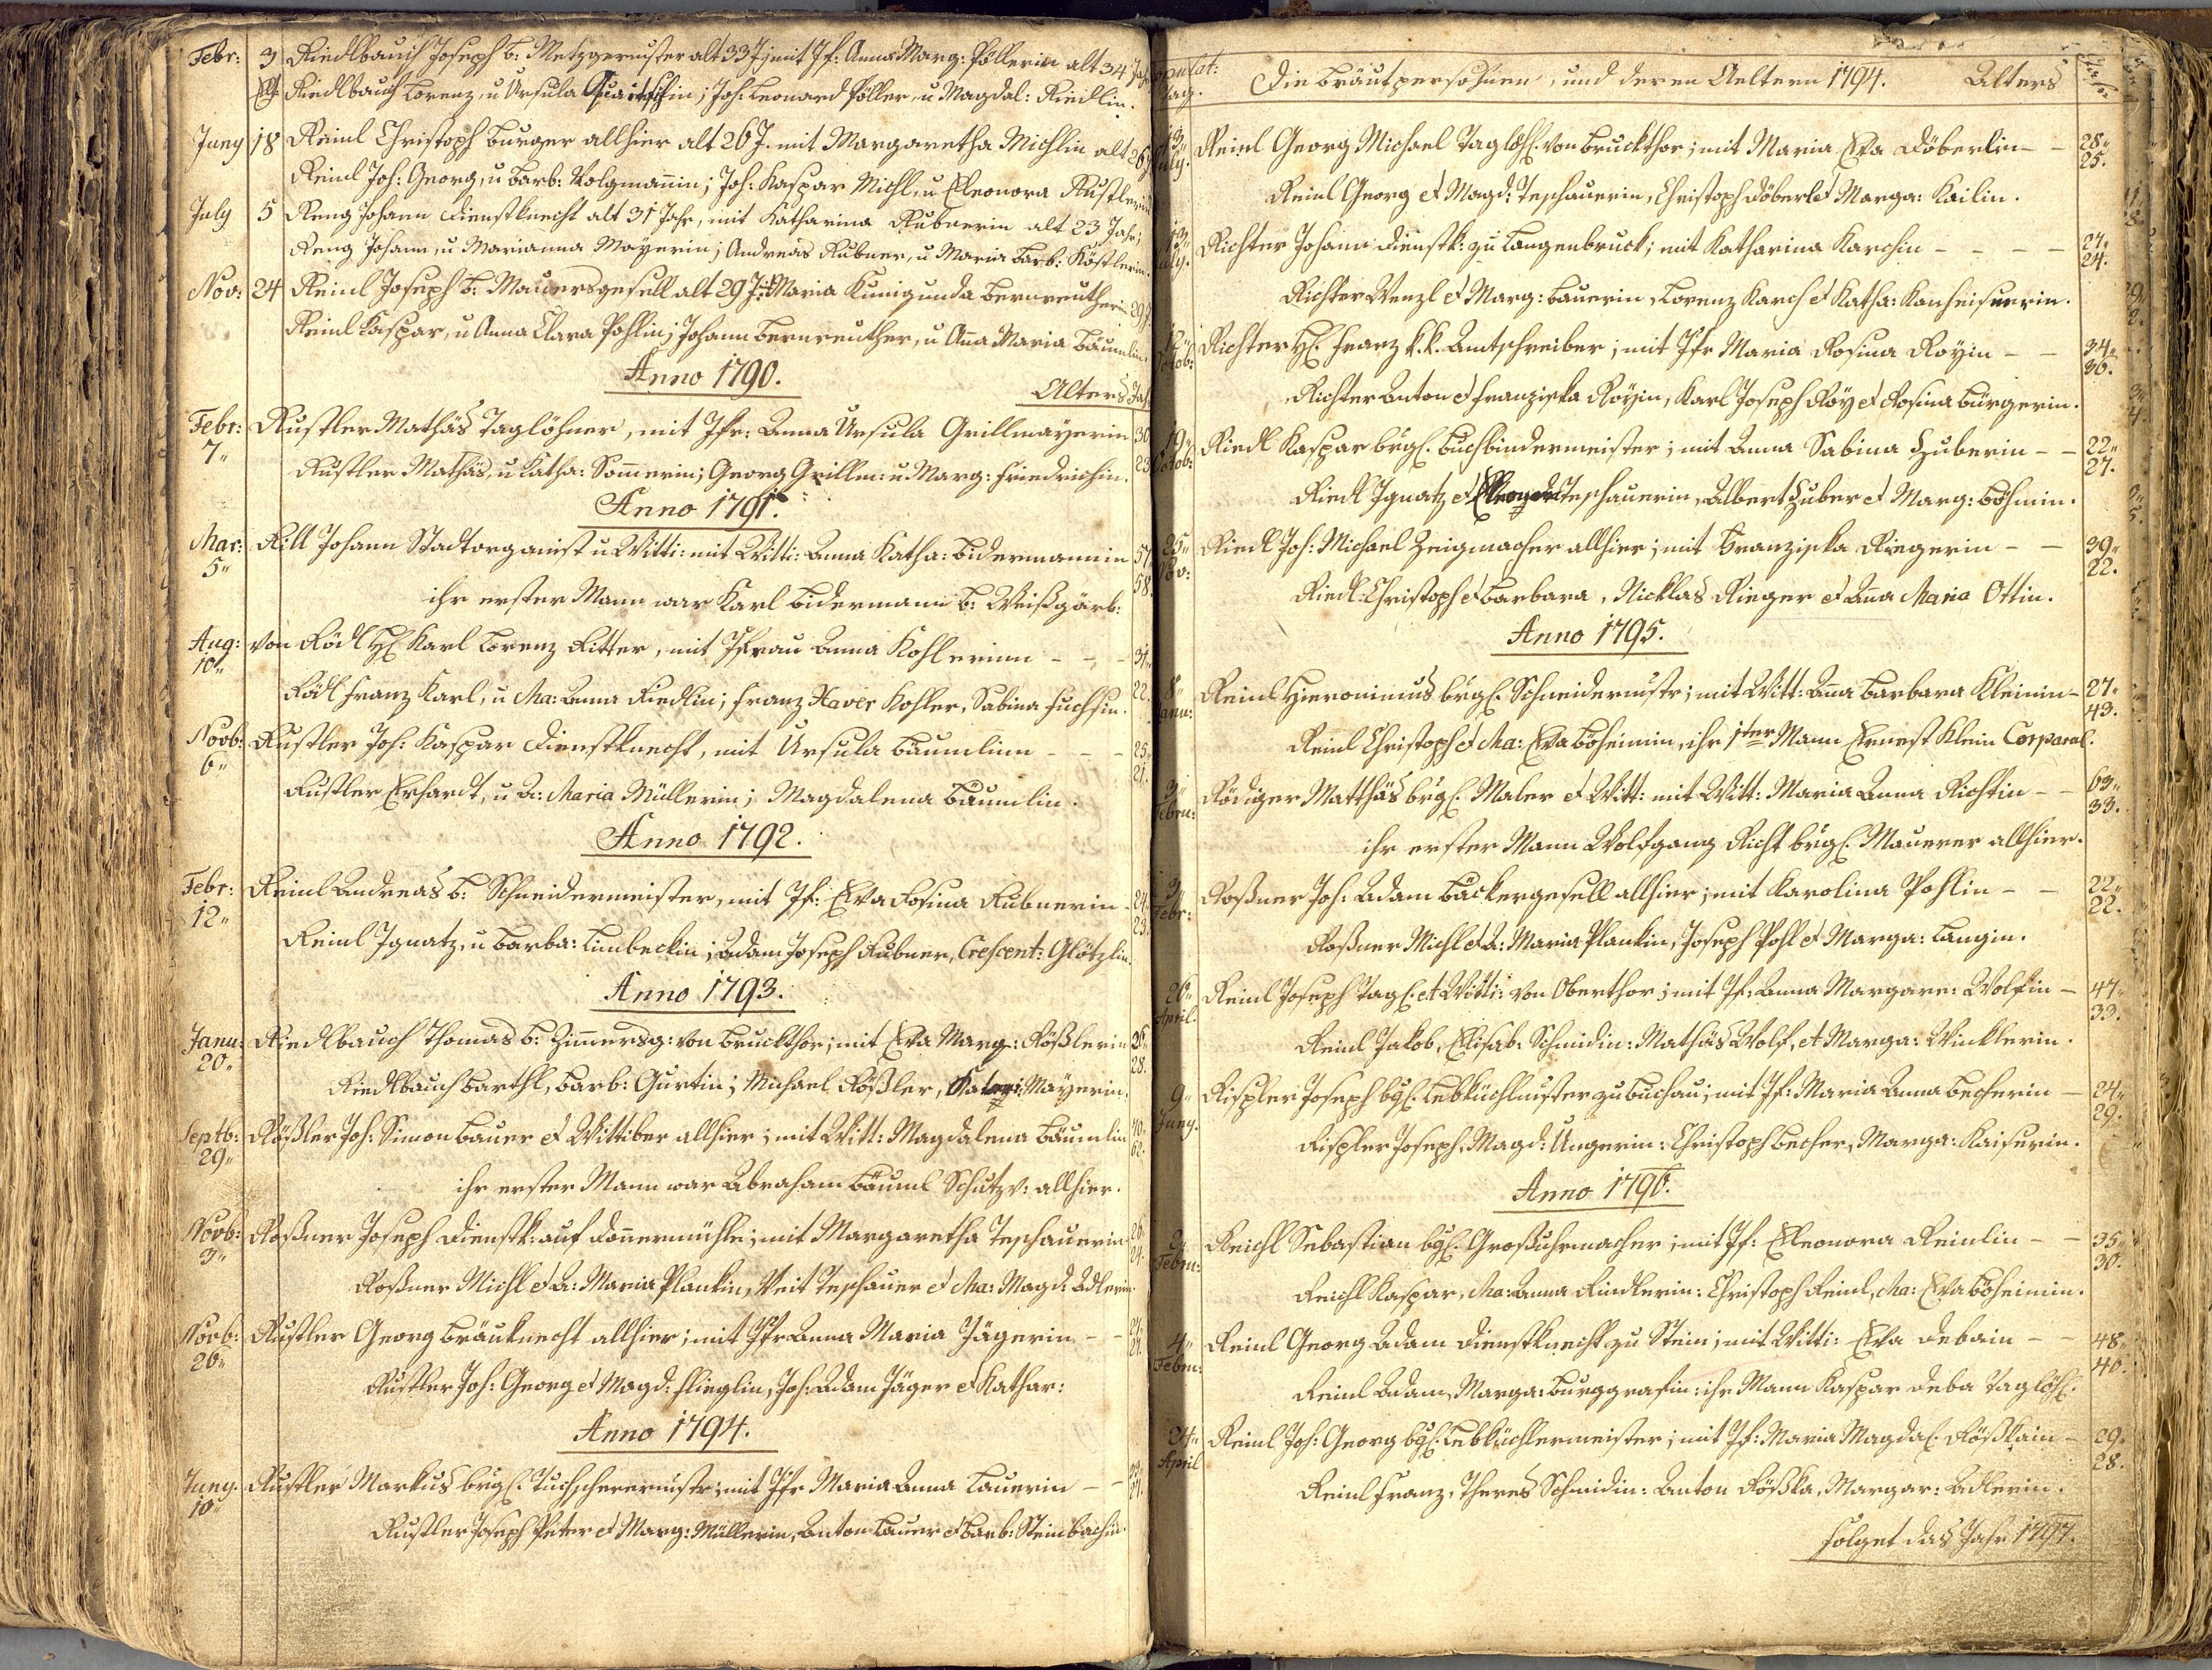 Febr: 3 Riedlbauch Joseph b: Metzgermister alt 33 J; mit Jf: Anna Marg: Föllerin alt 34 Jah
Riedlbauch Lorenz, u Ursula; Joh: Leonard Föller, u Magdal: Riedlin.
Juny 18 Reinl Christoph Burger allhier alt 26 J. mit Margaretha Michlin alt 26 J
Reinl Joh: Georg, u Barb: Volgmanin; Joh: Kaspar Michl, u Eleonora Rustlerin
July 5 Reng Johann Dienstknecht alt 31 Jahr, mit Katharina Rubnerin alt 23 Jahr;
Reng Johann, u Marianna Mayerin; Andreas Rubner, u Maria Barb: Köstlerin.
Nov: 24 Reinl Joseph b: Maurersgesell alt 29 J: mit Maria Kunigunda Bernreutherin 29 J.
Reinl Kaspar, u Anna Clara Pohlin; Johann Bernreuther, u Aña Maria Bäumlin.
Anno 1790.
Alters Jah
Febr: 7" Rustler Mathäs Taglöhner, mit Jfr: Anna Ursula Grillmayerin 30
Rustler Mathäs, u Katha: Somerin; Georg Grillm: u Marg: Friedrichin. 23
Anno 1791.
Mar: 5" Rill Johann Stadtorganist u Witti: mit Witti: Anna Katha: Bidermannin 57
ihr erster Mann war Karl Bidermann b: Weißgärb: 58.
Aug: 10" von Rödl H: Karl Lorenz Ritter, mit Jfrau Anna Kohlerinn - - - 31"
Rödl Franz Karl, u Ma: Anna Riedlin; Franz Xaver Kohler, Sabina Fuchsin. 22.
Novb: 6" Rustler Joh: Kaspar Dienstknecht, mit Ursula Bäumlinn - - - 25"
Rustler Erhardt, u A: Maria Müllerin; Magdalena Bäumlin. 21.
Anno 1792.
Febr: 12" Reinl Andreas b: Schneidermeister, mit Jf: Eva Rosina Rubnerin - 24.
Reinl Ignatz, u Barba: Limbeckin; Adam Joseph Rubner, Crescent: Glötzlin. 23.
Anno 1793.
Janu: 20" Riedlbauch Thomas b: Zimersg: von Bruckthor; mit Eva Marg: Rößlerin
Riedlbauch Barthl, Barb: Gurtin; Michael Rößler, Mayerin. 28.
Septb: 29" Rößler Joh: Simon Bauer et Wittiber allhier; mit Witt: Magdalena Bäumlin
ihr erster Mann war Abraham Bäuml Schutzv: allhier. 62.
Novb: 3" Roßner Joseph Dienstk: auf Donnermühle; mit Margaretha Teschauerin 26
Roßner Michl et A: Maria Plankin, Veit Teschauer et Ma: Magd: Adlerin 24.
Novb: 26" Rustler Georg Bräuknecht allhier; mit Jfr Anna Maria Jägerin - -
Rustler Joh: Georg et Magd: Flieglin, Joh: Adam Jäger et Kathar:
Anno 1794.
Juny. 10" Rustler Markus brgl. Tuchscherermistr; mit Jfr Maria Anna Lauerin - -
Rustler Joseph Peter et Marg: Müllerin, Anton Lauer et Barb: Steinbachin.
Tag. Die Brautpersohnen, und deren Aeltern 1794. Alters
13" July. Reinl Georg Michael Taglöh: von Bruckthor; mit Maria Eva Döberlin - - 28"
Reinl Georg et Magd: Teschauerin, Christoph Döberl et Marga: Kailin. 25.
13" July. Richter Johann Dienstk: zu Langenbruck; mit Katharina Karchin - - - - 27"
Richter Wenzl et Marg: Bauerin, Lorenz Karch et Katha: Kanheiserin. 24.
12" Octob: Richter H: Franz k.k. Amtschreiber; mit Jfr Maria Rosina Royin - - 34"
Richter Anton et Franziska Royin, Karl Joseph Roy et Rosina Bürgerin. 36.
19" Octob: Riedl Kaspar brgl. Buchbindermeister; mit Anna Sabina Huberin - - 22"
Riedl Ignatz et Teschauerin, Albert Huber et Marg: Böhmin. 27.
25" Nov: Riedl Joh: Michael Zeigmacher allhier; mit Franziska Riegerin - - 39"
Riedl Christoph et Barbara, Nicklas Rieger et Aña Maria Ottin. 22.
Anno 1795.
8" Janu: Reinl Hieronimus brgl. Schneidermistr; mit Witt: Aña Barbara Kleinin - 27"
Reinl Christoph et Ma: Eva Böheimin, ihr 1ter Mann Ernest Klein Corporal. 43.
3" Febru: Rödiger Matthäs brgl. Maler et Witt: mit Witt: Maria Anna Richtin - - 63"
ihr erster Mann Wolfgang Richt brgl. Maurer allhier. 33.
3" Febr: Roßner Joh: Adam Bäckergesell allhier; mit Karolina Pohlin - - 22"
Roßner Michl et A: Maria Plankin, Joseph Pohl et Marga: Langin. 22.
26" April. Reinl Joseph Tagl. et Witti: von Oberthor; mit Jf: Anna Margare: Wolfin - 47"
Reinl Jakob, Elisab: Schmidin: Mathäs Wolf, et Marga: Winklerin. 33.
9" Juny. Rispler Joseph bgl. Lebküchlmister zu Buchau; mit Jf: Maria Anna Becherin - 24"
Rispler Joseph, Magd: Ungerin: Christoph Becher, Marga: Kaiserin. 29.
Anno 1796.
2" Febru: Reichl Sebastian bgl. Großuhrmacher; mit Jf: Eleonora Reinlin - - 35"
Reichl Kaspar, Ma: Anna Rindlerin: Christoph Reinl, Ma: Eva Böheimin. 30.
4" Febru: Reinl Georg Adam Dienstknecht zu Stein; mit Witti: Eva Debain - - 48"
Reinl Adam, Marga: Burggrafin: ihr Mann Kaspar Deba Taglöh. 46.
24" April Reinl Joh: Georg bgl. Lebküchlermeister; mit Jf: Maria Magdal. Rößkain - 29"
Reinl Franz, Theres Schmidin: Anton Rößka, Margar: Adlerin. 28.
Folget das Jahr 1797.